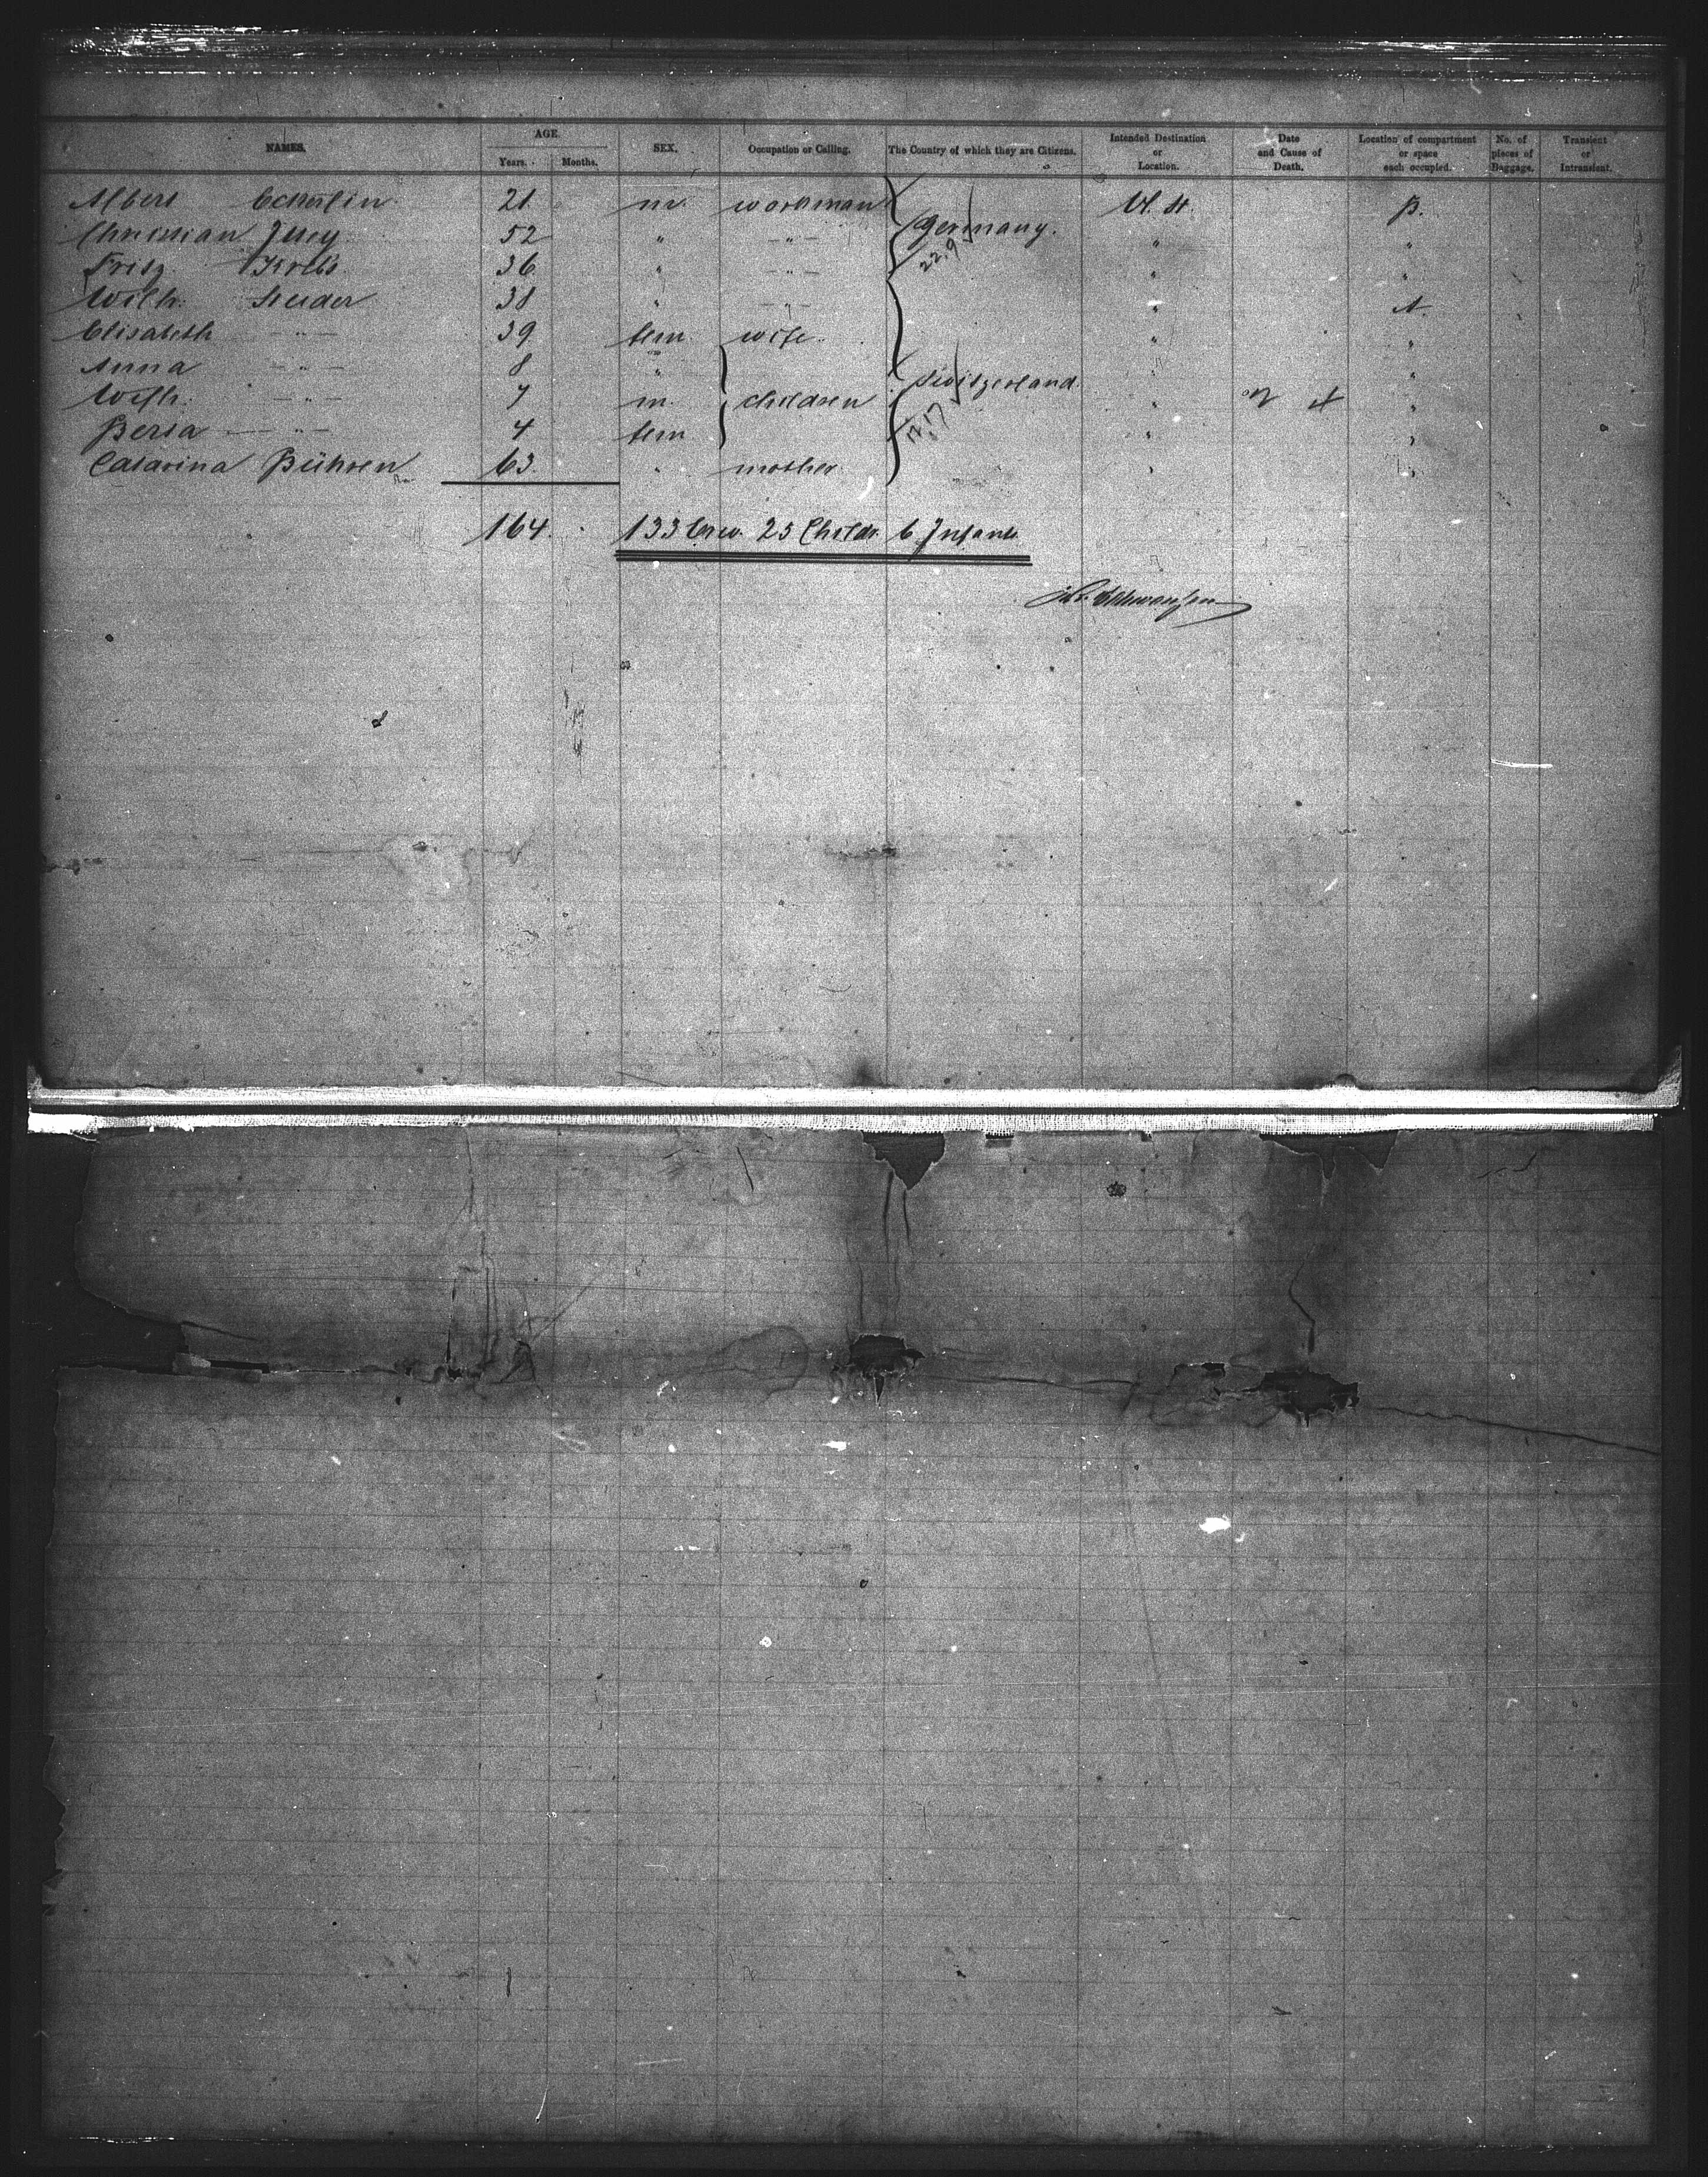 NAMES. AGE. Years. Months. SEX. Occupation or Calling. The Country of which they are Citizens. Intended Destination or Location. Date and Cause of Death. Location of compartment or space each occupied. No. of pieces of Baggage. Transient or Intransient.
Albert 21 m. workman U. St. B.
Christian 52 " -"- Germany. " "
Fritz Krebs 36 " -"- 22.9 " "
Wilh. Studer 38 " -"- " A.
Elisabeth -"- 39 fem wife. " "
Anna -"- 8 " " "
Wilh. -"- 7 m. children Switzerland. " "
Berta -"- 4 fem 17.17 " "
Catarina Bühren 63. " mother " "
164. 133 Erw. 25 Childr. 6 Infants